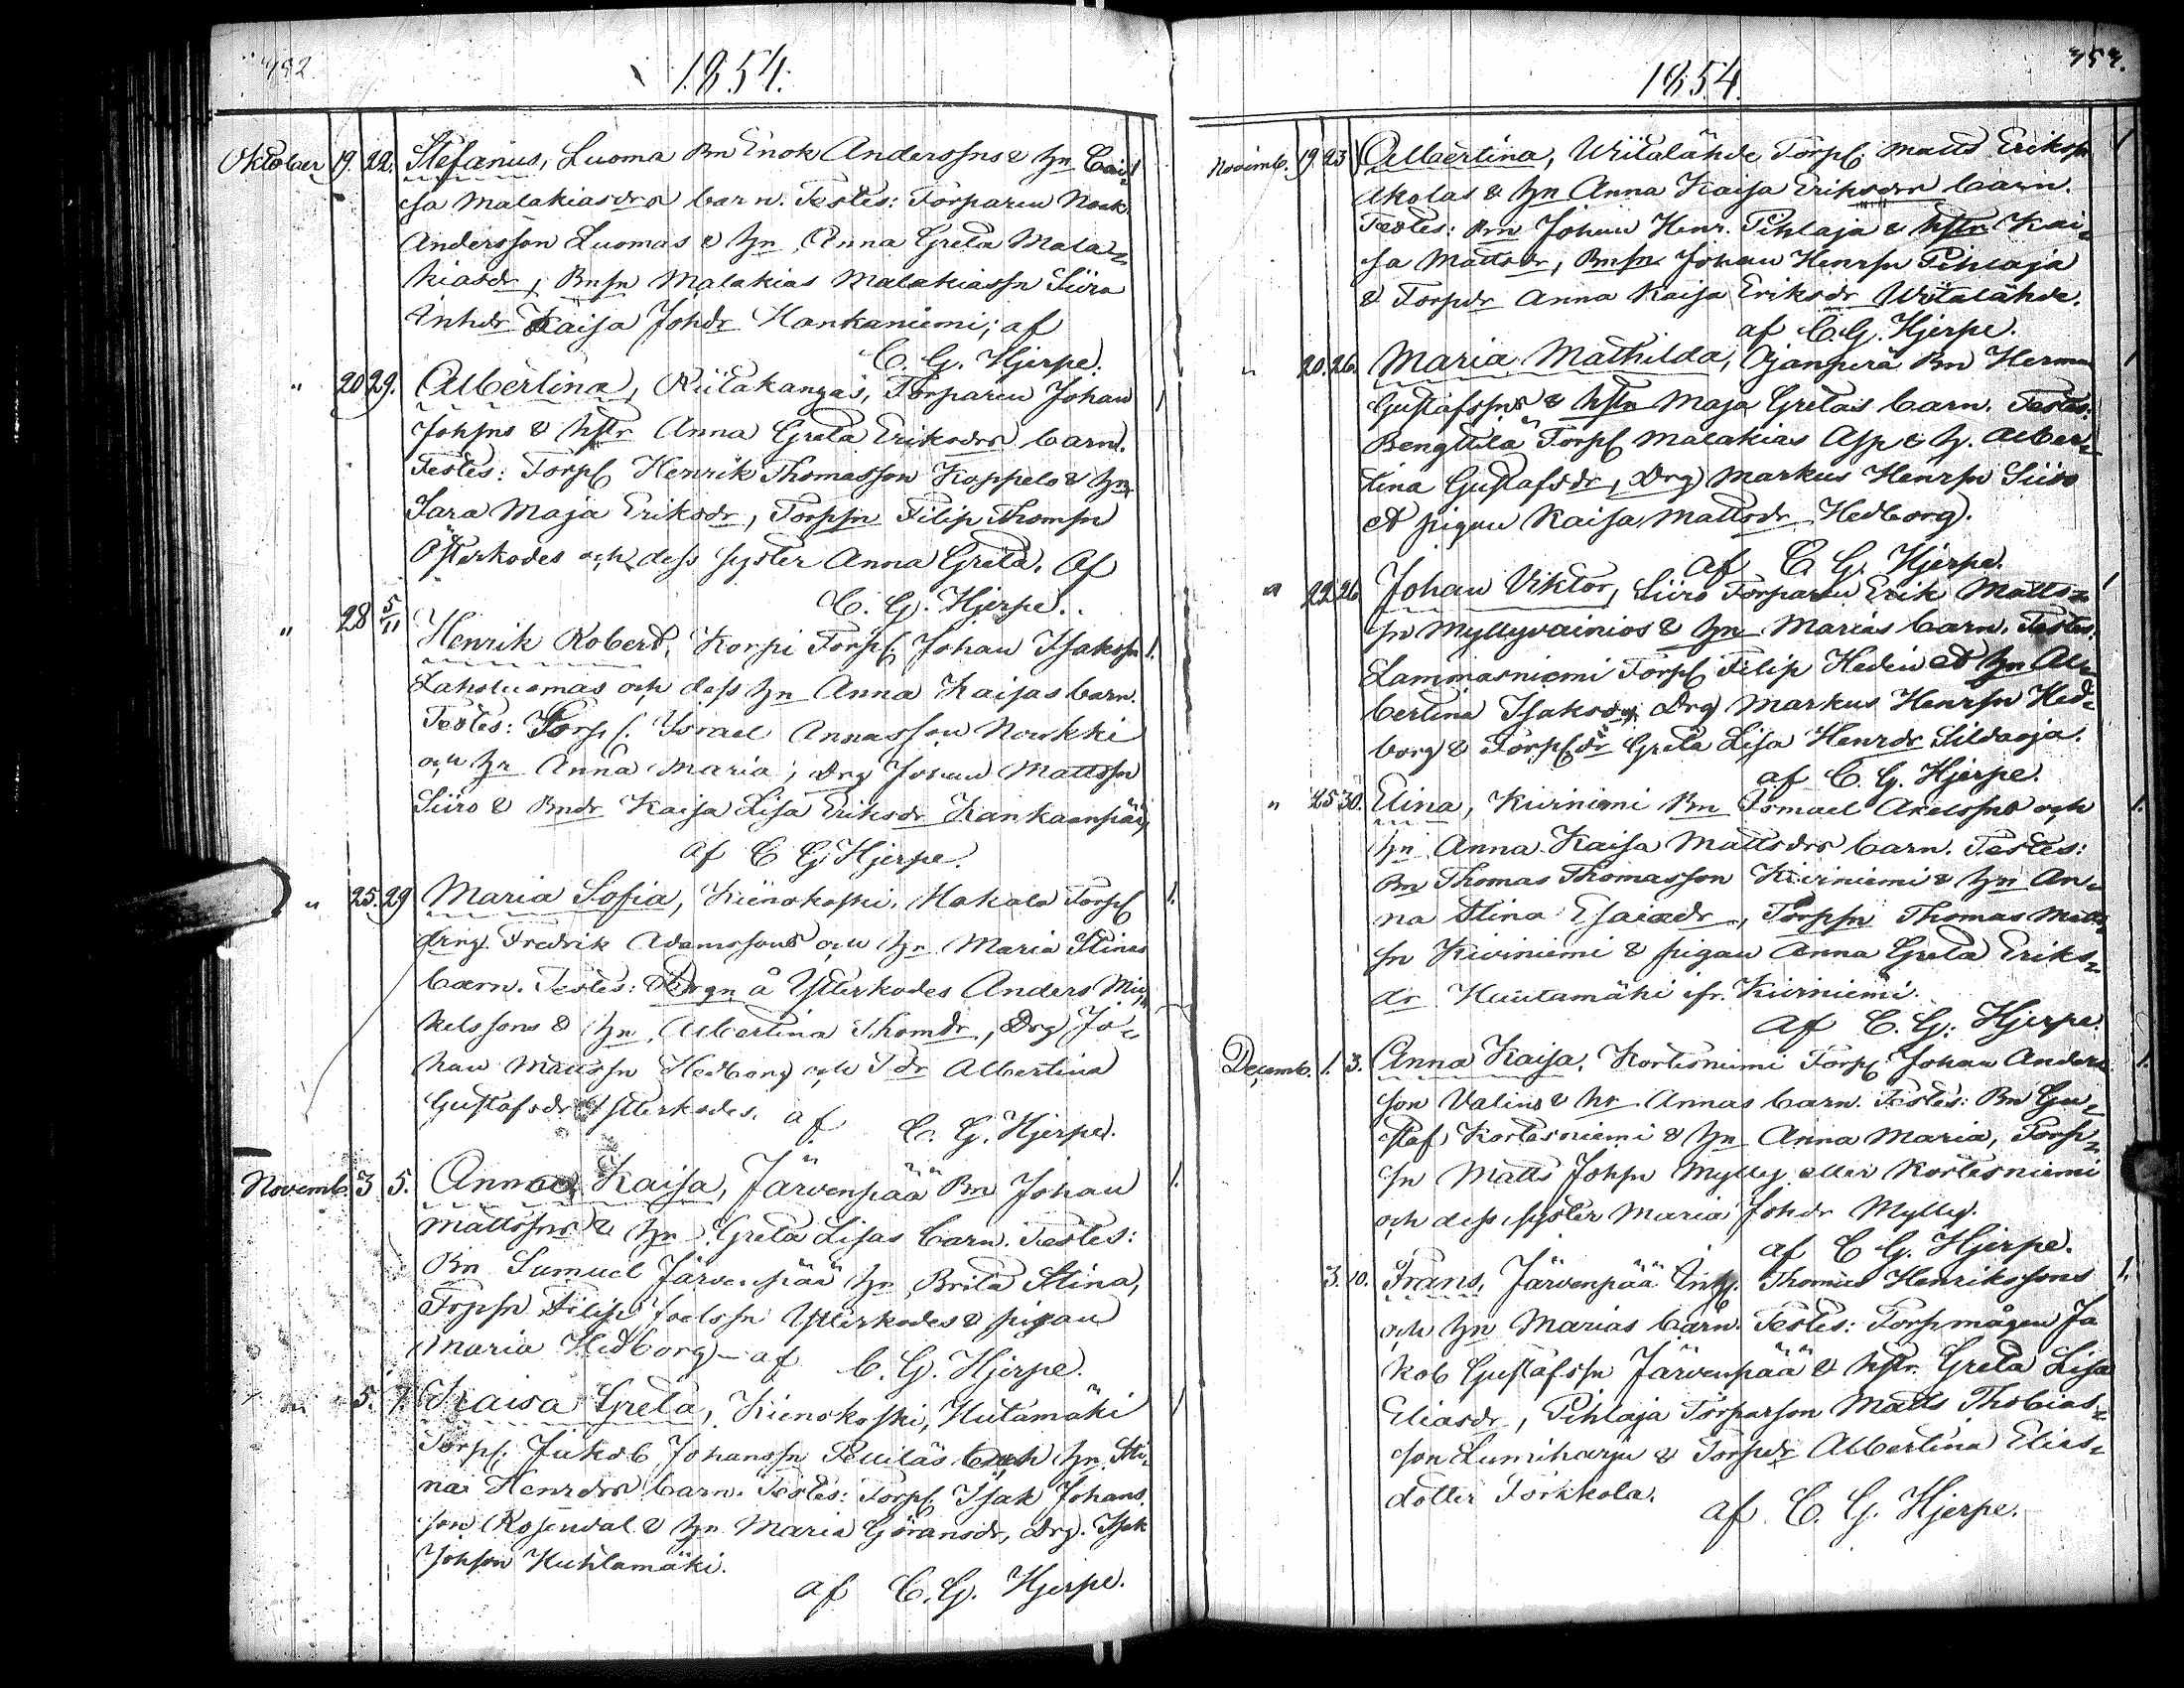 1854.
Oktober 19. 22. Stefanus, Luoma Bn Enok Anderssns & hn Cai-
sa Malakiasdrs barn. Testes: Torparen Noak
Andersson Luomas & hn Anna Greta Mala-
kiasdr, Bnsn Malakias Malakiassn Siiro
Inhdr Kaisa Johdr Hankaniemi; af
C. G. Hjerpe.
" 20 29. Albertina, Riitakangas, Torparen Johan
Johsns & hstr Anna Greta Eriksdrs barn.
Testes: Torp. Henrik Thomasson Koppelo & hn
Sara Maja Eriksdr, Torpsn Filip Thomsn
Ytterkodes och dess syster Anna Greta. Af
C. G. Hjerpe.
" 28 5/11 Henrik Robert, Korpi Torp. Johan Isakssn 1.
Laholuomas och dess hn Anna Kaisas barn.
Testes: Torp. Israel Annasson Nourkki
och hn Anna Maria; Drg Johan Mattssn
Siiro & Bndr Kaisa Lisa Eriksdr Kankaanpää,
af C G Hjerpe.
" 25. 29 Maria Sofia, Kiinokoski, Hakala Torp 1.
drng. Fredrik Adamssons och hn Maria Stinas
barn. Testes: Drgn å Ytterkodes Anders Mic-
kelssons & hn Albertina Thomdr, Drg Jo-
han Mattssn Hedborg och Tdr Albertina
Gustafsdr Ytterkodes. af C. G. Hjerpe.
Novemb. 3 5. Anna Kaisa, Järvenpää Bn Johan 1.
Mattssns & hn Greta Lisas barn. Testes:
Bn Samuel Järvenpää hn Brita Stina,
Torpsn Filip Joelssn Ytterkodes & pigan
Maria Hedborg - af C. G. Hjerpe.
" 5. 7. Kaisa Greta, Kienokoski, Hutamäki
Torp. Jakob Johanssn och hn Sti-
nas Henrdrs barn. Testes: Torp. Isak Johans
son Rosendal & hn Maria Göransdr, Drg. Isak
Johson Kuhlamäki.
af C. G. Hjerpe.
1854.
Novemb. 19. 23 Albertina, Wiitalähde Torp. Matts Erikssn 1
Akolas & hn Anna Kaisa Eriksdrs barn.
Testes: Bn Johan Henr. Pihlaja & hstr Kai-
sa Mattsdr, Bnsn Johan Henrsn Pihlaja
& Torpdr Anna Kaisa Eriksdr Witalähde.
af C. G. Hjerpe.
" 20. 26. Maria Mathilda, Ojanperä Bn Herman 1
Gustafssns & hstr Maja Gretas barn. Testes:
Bengttilä Torp Malakias Asp & h. Alber-
tina Gustafsdr, Drg Markus Henrsn Siiro
et pigan Kaisa Mattsdr Hedborg.
af C. G. Hjerpe.
" 22 26 Johan Viktor, Siiro Torparen Erik Matts- 1
sn Myllyvainios & hn Marias barn. Testes:
Lammasniemi Torp Filip Hedin et hn Al-
bertina Isaksdr, Drg Markus Henrsn Hed-
borg & Torpdr Greta Lisa Henrdr Sildaoja.
af C. G. Hjerpe.
" 25 30. Elina, Kiviniemi Bn Ismael Axelssns och 1.
hn Anna Kaisa Mattsdrs barn. Testes:
Bn Thomas Thomasson Kiviniemi & hn An-
na Stina Esaiædr, Torpsn Thomas Matts
sn Kiviniemi & pigan Anna Greta Eriks-
dr Huutamäki ifr. Kiviniemi.
af C. G. Hjerpe.
Decemb. 1. 3. Anna Kaisa, Kortesniemi Torp Johan Anders 1.
son Valins & hn Annas barn. Testes: Bn Gu-
staf Kortesniemi & hn Anna Maria, Torp-
sn Matts Johsn Mylly eller Kortesniemi
och dess syster Maria Johdr Mylly.
af C G. Hjerpe.
3. 10. Frans, Järvenpää Inh. Thomas Henrikssons 1.
och hn Marias barn. Testes: Torpmågen Ja
kob Gustafssn Järvenpää & hstr. Greta Lisa
Eliasdr, Pihlaja Torparson Matts Thobias-
son Lumiharju & Torpdr Albertina Elias-
dotter Torkkola.
af C. G. Hjerpe.